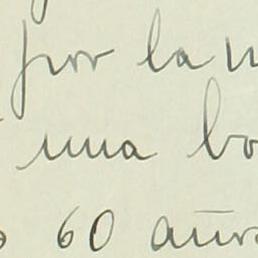 por la
una
60 años